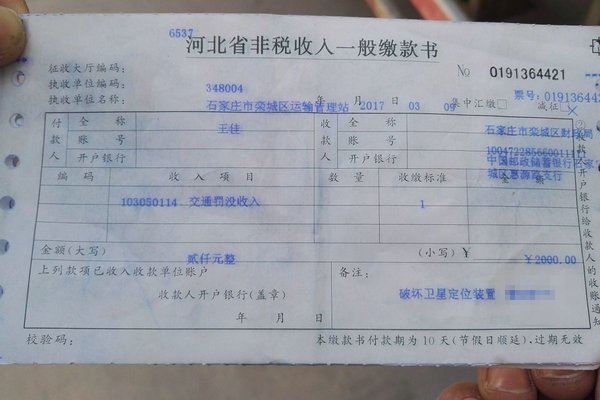 6537
河北省非税收入一般缴款书
征收大厅编码:
№ 0191364421
执收单位编码: 348004
票号:0191364421
执收单位名称: 石家庄市栾城区运输管理站 2017 年 03 月 09 日 集中汇缴□ 减征□
付款人 全称 王佳 收款人 全称 石家庄市栾城区财政局
账号 账号
开户银行 开户银行 中国邮政储蓄银行石家
城区惠源路支行
编码 收入项目 数量 收缴标准 金额
103050114 交通罚没收入 1
金额(大写) 贰仟元整 (小写)¥ ¥2000.00
上列款项已收入收款单位账户 备注:
收款人开户银行(盖章) 破坏卫星定位装置
年 月 日
校验码: 本缴款书付款期为10天(节假日顺延),过期无效
②收款人开户银行给收款人的收账通知